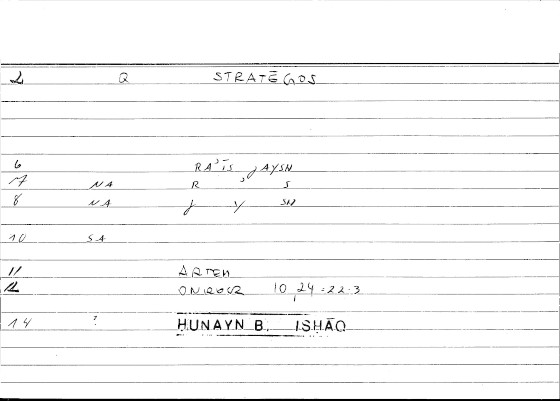 2 Q STRATĒGOS
6 RA'ĪS jAYSN
7 NA R ' S
8 NA j Y SN
10 SA
11 ARTEM
12 ONIROCR 10,24=22.3
14 ? HUNAYN B. ISHĀQ